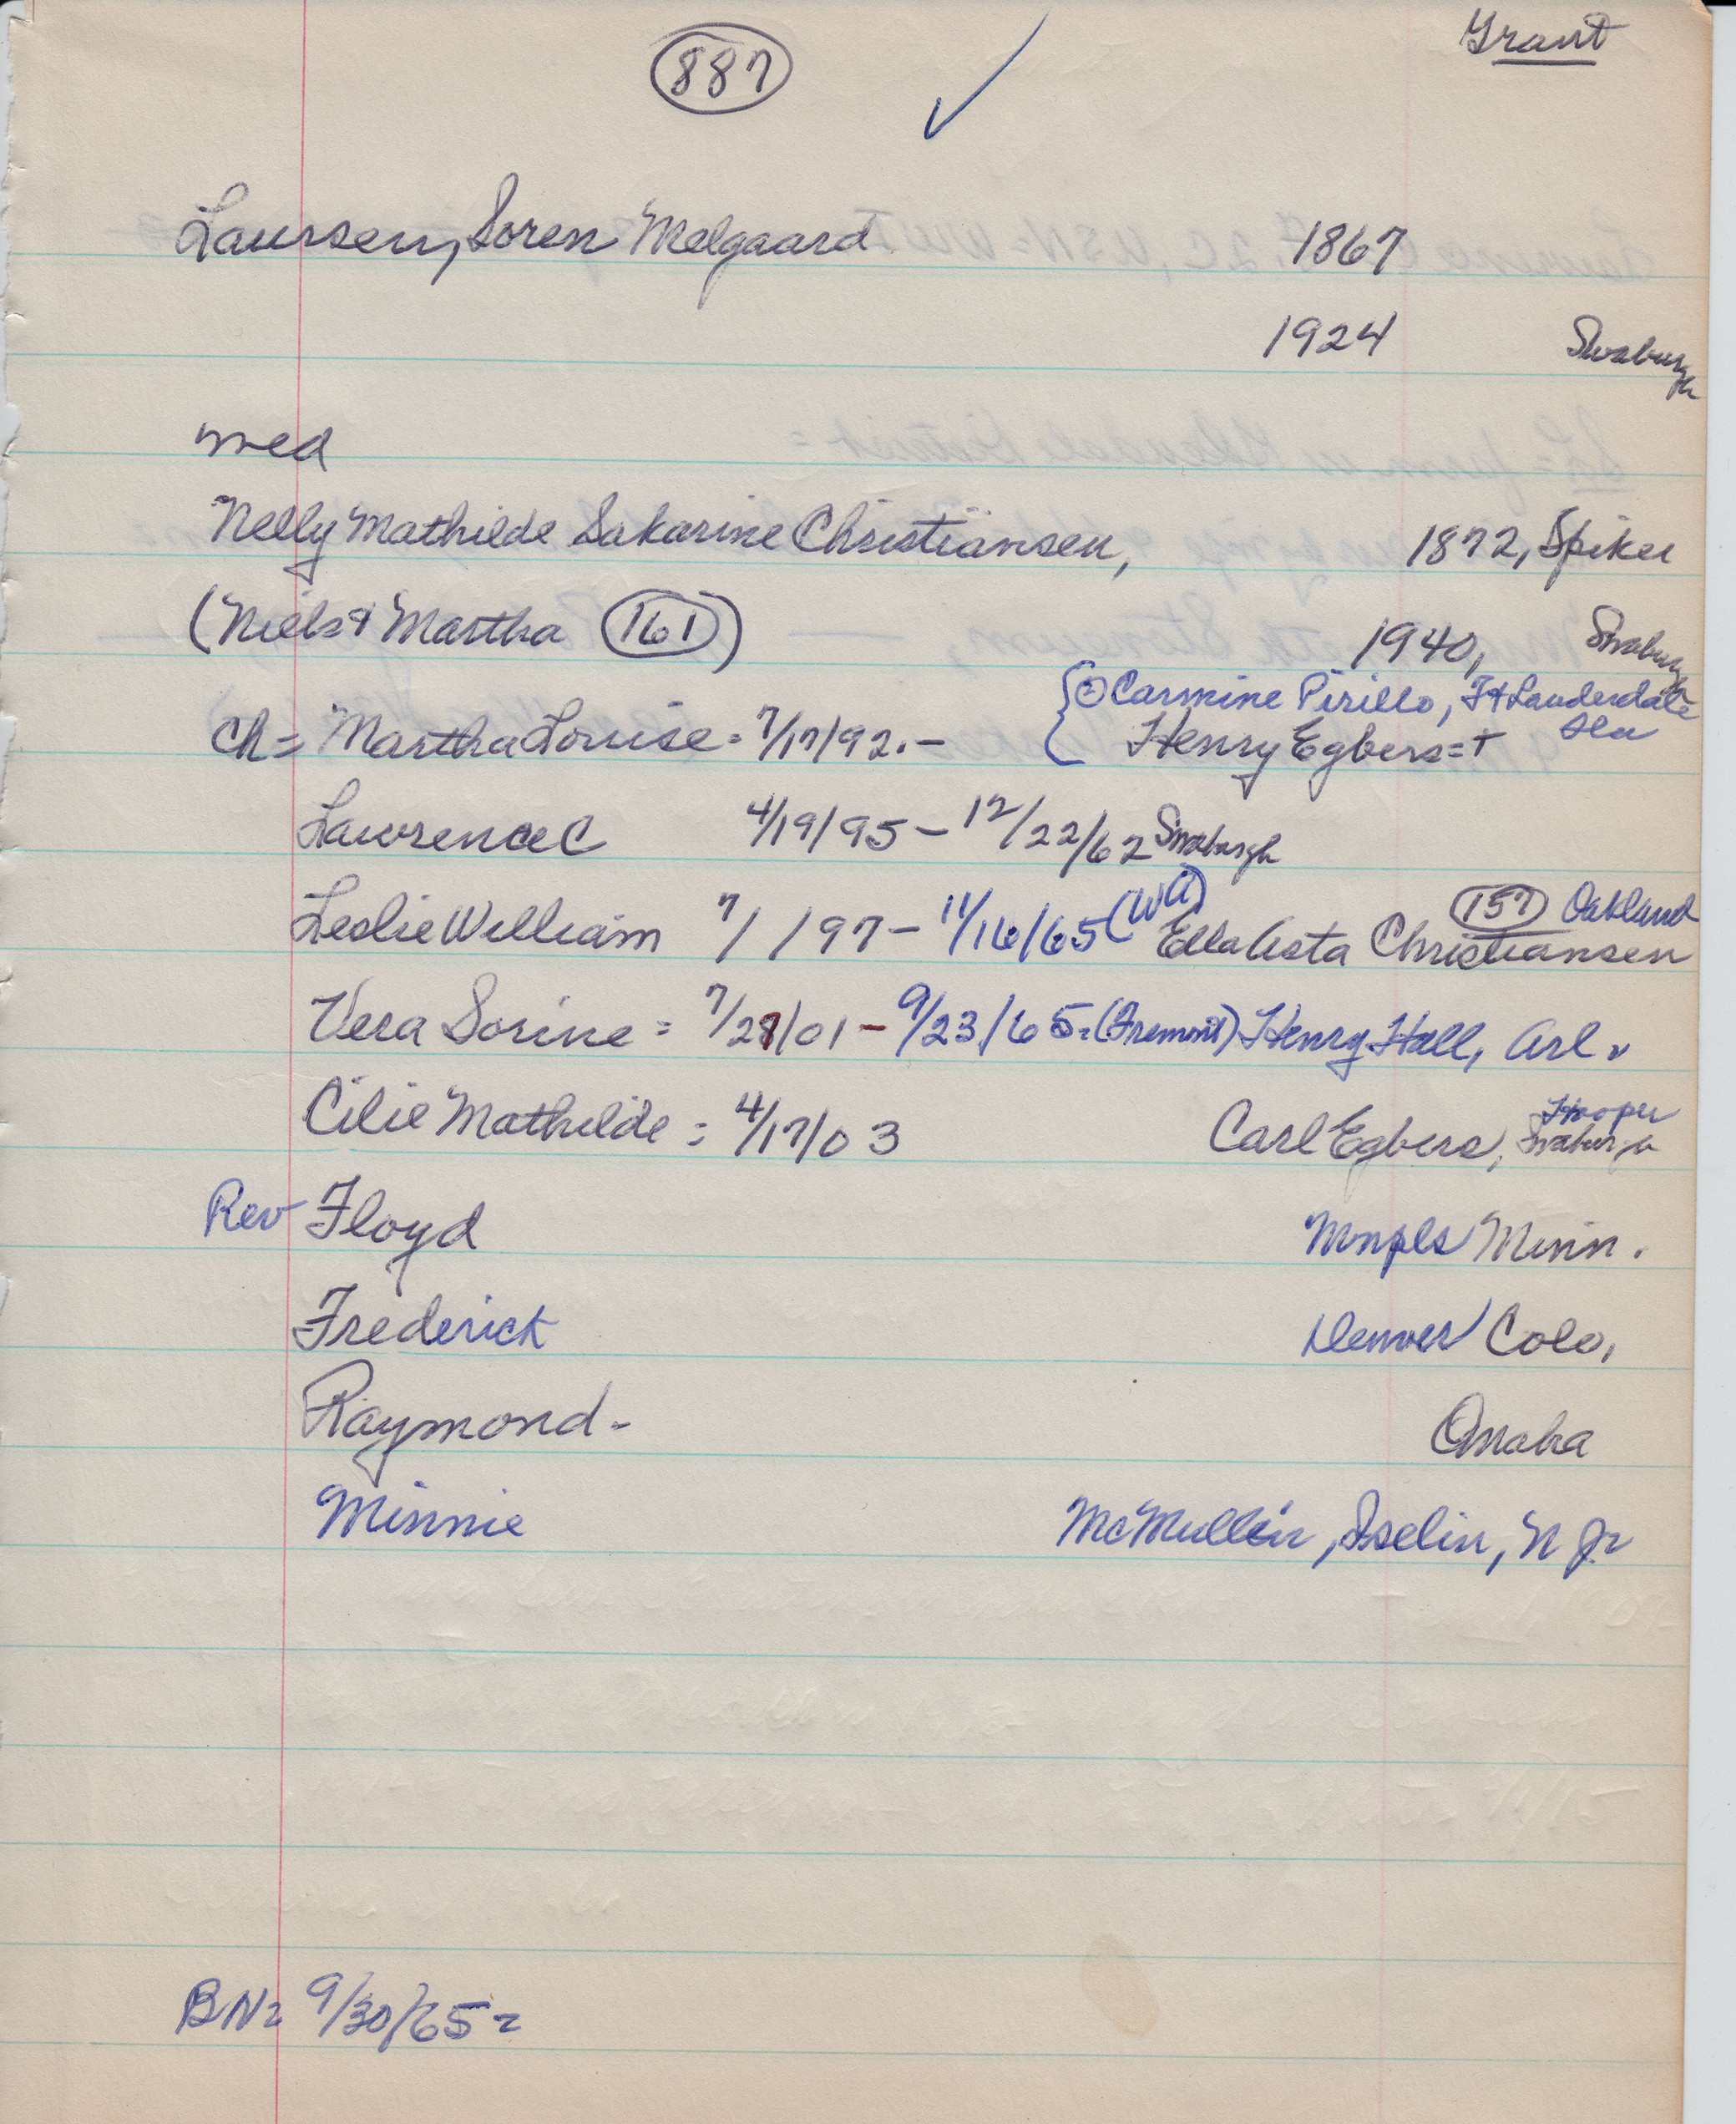 887 Grant
Laursen, Soren Melgaard 1867
1924 Swaburgh
med
Nelly Mathilde Sakarine Christiansen, 1872, Spiker
(Niels & Martha 161) 1940, Swaburgh
② Carmine Pirillo, Ft Lauderdale
Ch = Martha Louise - 7/17/92. - Henry Egbers = + Fla
Lawrence C 4/19/95 - 12/22/62 Swaburgh
157 Oakland
Leslie William 7/ /97 - 11/16/65 (Wa) Ella Asta Christiansen
Vera Sorine = 7/27/01 - 9/23/65 = (Fremont) Henry Hall, Arl.
Hooper
Cilie Mathilde = 4/17/03 Carl Egbers, Swaburgh
Rev Floyd Mnpls Minn.
Frederick Denver Colo,
Raymond - Omaha
Minnie McMullin, Iselin, N Jr
BN = 9/30/65 =